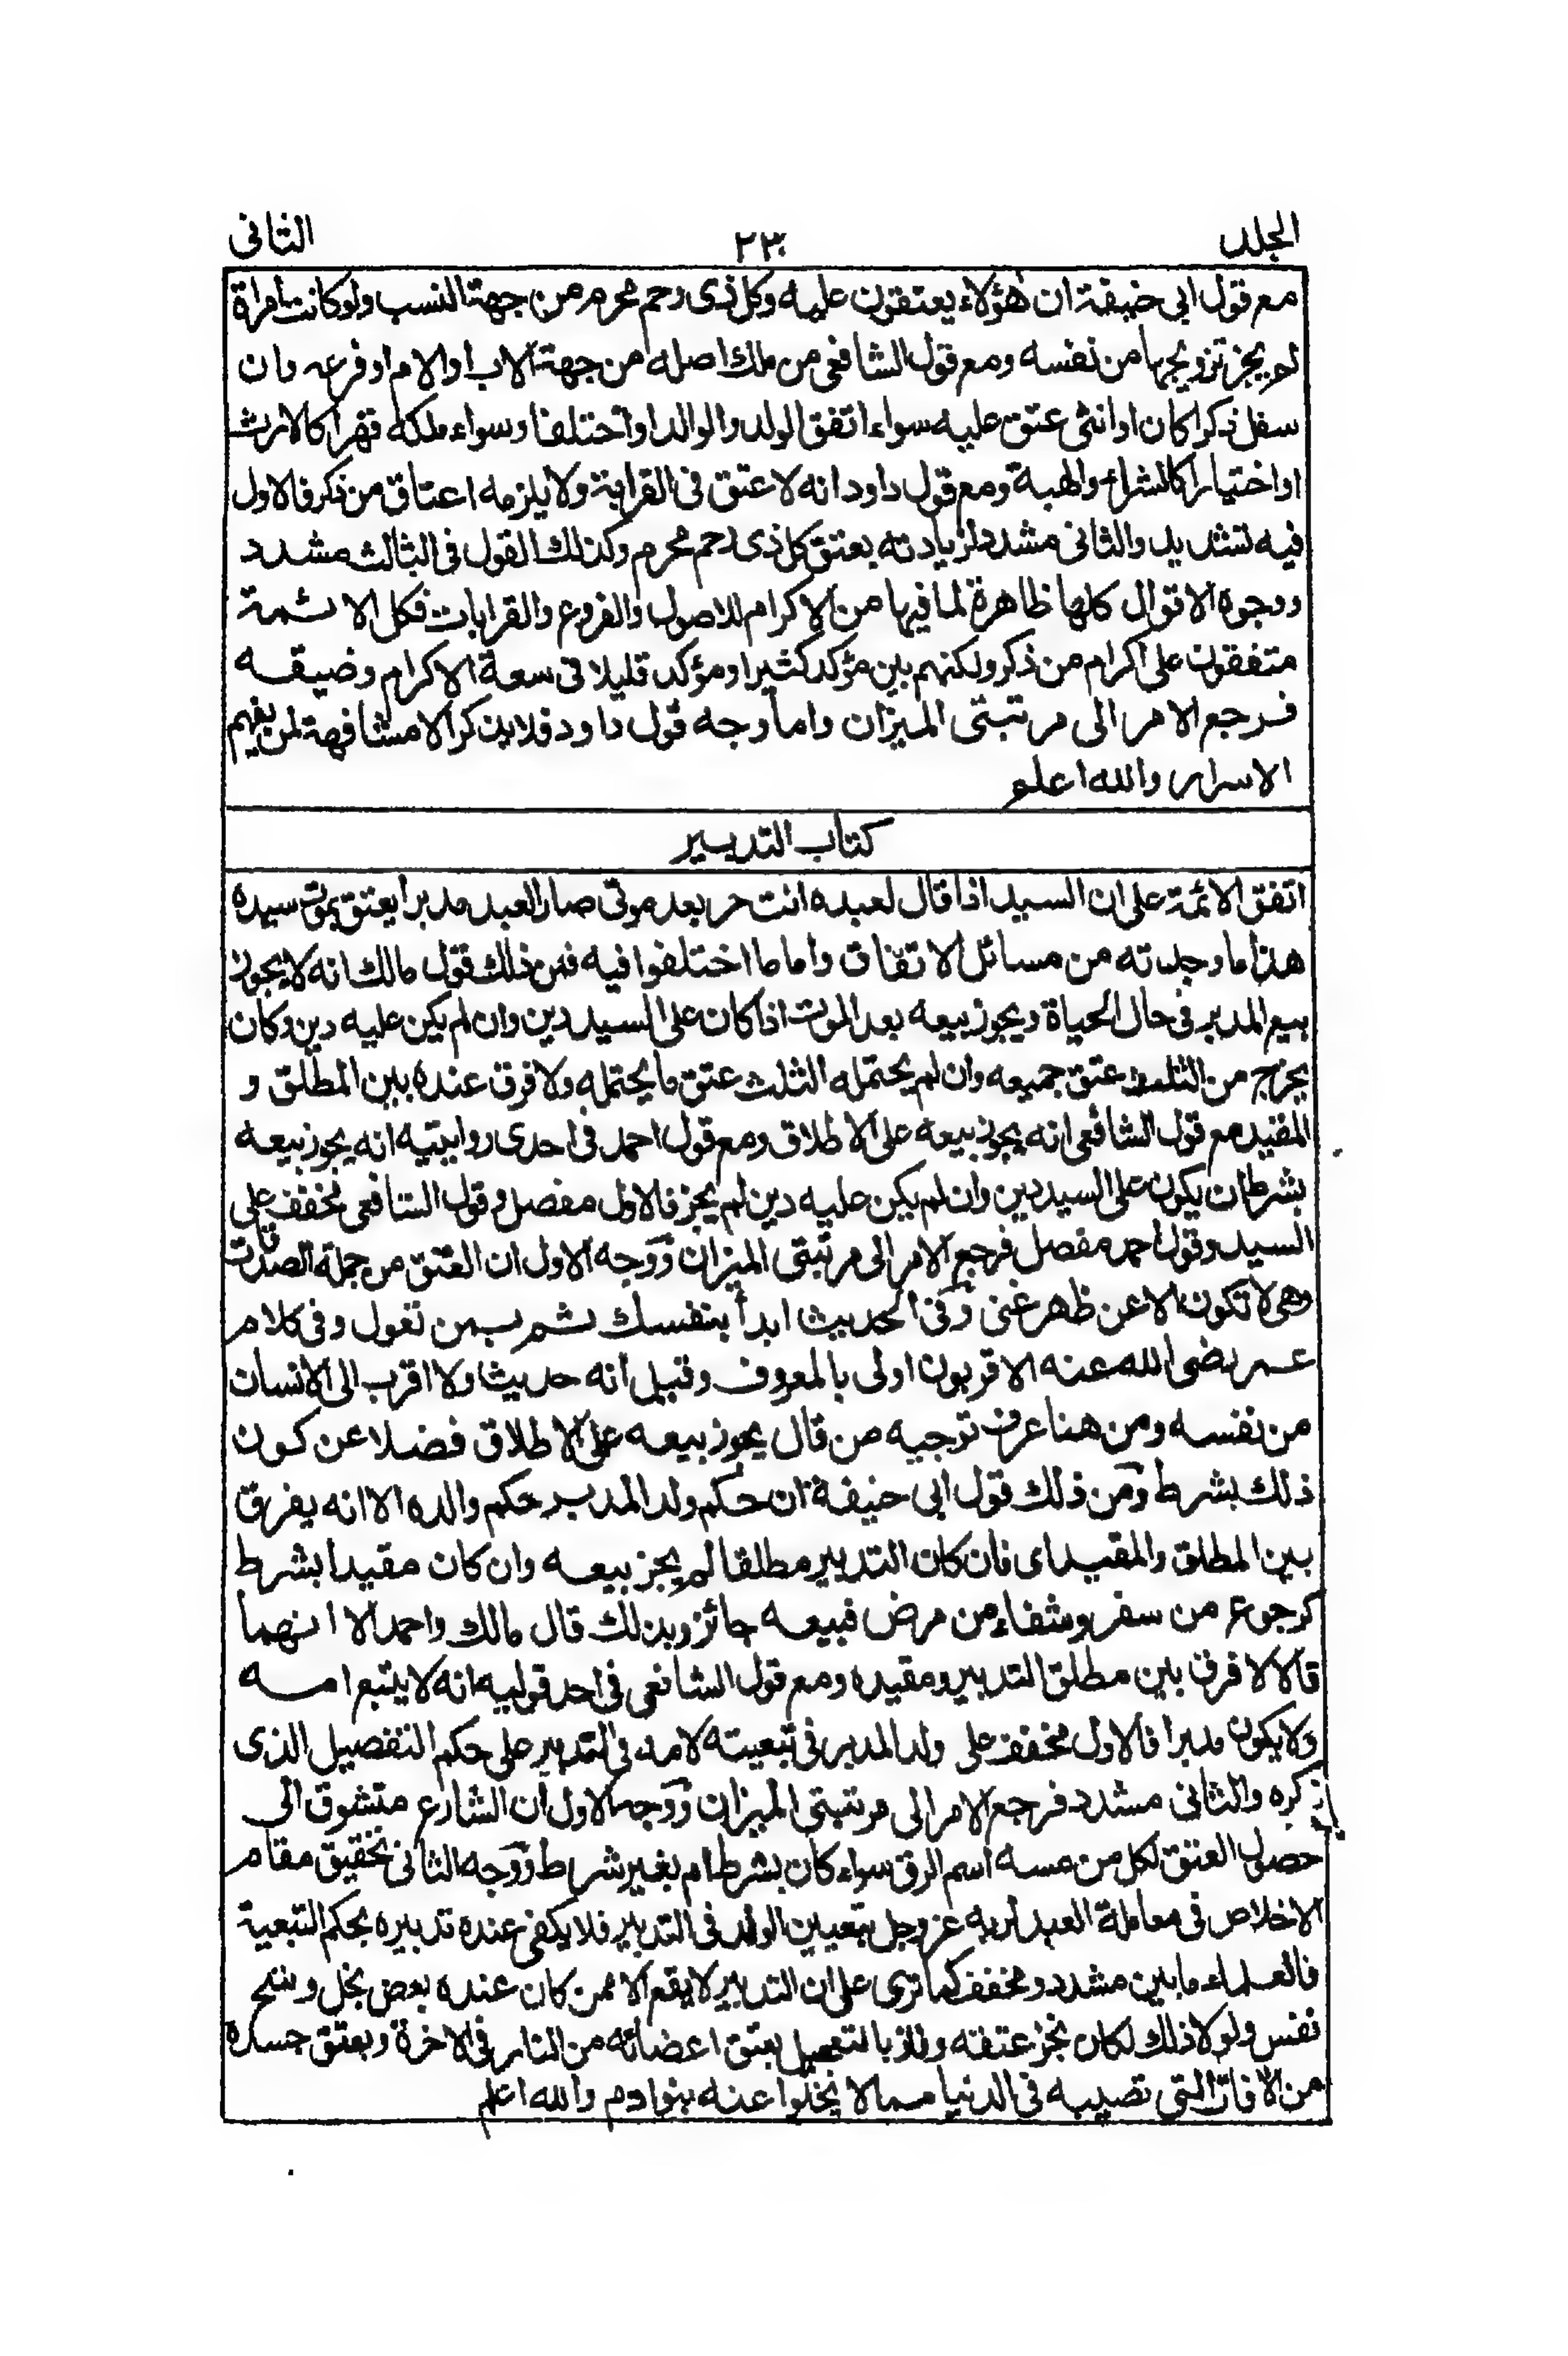 الجلد ٢٣٠ الثانى
مع قول ابى حنيفة ان هؤلاء يعتقون عليه وكل ذى رحم محرم من جهة النسب ولو كانت امراة
لم يجز تزويجها من نفسه ومع قول الشافعى من ملك اصله من جهة الاب او الام او فرعه وان
سفل ذكرا كان او انثى عتق عليه سواء اتفق الولد والوالد او اختلفا وسواء ملكه قهرا كالارث
او اختيارا كالشراء والهبة ومع قول داود انه لا عتق فى القرابة ولا يلزمه اعتاق من ذكر فالاول
فيه تشديد والثانى مشدد لزيادته بعتق كل ذى رحم محرم وكذلك القول فى الثالث مشدد
ووجوه الاقوال كلها ظاهرة لما فيها من الاكرام للاصول والفروع والقرابات فكل الائمة
متفقون على اكرام من ذكر ولكنهم بين مؤكد كثيرا ومؤكد قليلا فى سعة الاكرام وضيقه
فرجع الامر الى مرتبتى الميزان واما وجه قول داود فلا يذكر الا مشافهة لمن يفهم
الاسرار والله اعلم
كتاب التدبير
اتفق الائمة على ان السيد اذا قال لعبده انت حر بعد موتى صار العبد مدبرا يعتق بموت سيده
هذا ما وجدته من مسائل الاتفاق واما ما اختلفوا فيه فمن ذلك قول مالك انه لا يجوز
بيع المدبر فى حال الحياة ويجوز بيعه بعد الموت اذا كان على السيد دين وان لم يكن عليه دين وكان
يخرج من الثلث عتق جميعه وان لم يحتمله الثلث عتق ما يحتمله ولا فرق عنده بين المطلق و
المقيد مع قول الشافعى انه يجوز بيعه على الاطلاق ومع قول احمد فى احدى روايتيه انه يجوز بيعه
بشرط ان يكون على السيد دين وان لم يكن عليه دين لم يجز فالاول مفصل وقول الشافعى مخفف على
السيد وقول احمد مفصل فرجع الامر الى مرتبتى الميزان ووجه الاول ان العتق من جملة الصدقات
وهى لا تكون الا عن ظهر غنى وفى الحديث ابدأ بنفسك ثم بمن تعول وفى كلام
عمر رضى الله عنه الاقربون اولى بالمعروف وقيل انه حديث ولا اقرب الى الانسان
من نفسه ومن هنا عرف توجيه من قال يجوز بيعه على الاطلاق فضلا عن كون
ذلك بشرط ومن ذلك قول ابى حنيفة ان حكم ولد المدبر حكم والده الا انه يفرق
بين المطلق والمقيد اى فان كان التدبير مطلقا لم يجز بيعه وان كان مقيدا بشرط
كرجوع من سفر وشفاء من مرض فبيعه جائز وبذلك قال مالك واحمد الا انهما
قالا لا فرق بين مطلق التدبير ومقيده ومع قول الشافعى فى احد قوليه انه لا يتبع امه
ولا يكون مدبرا فالاول مخفف على ولد المدبر فى تبعيته لامه فى التدبير على حكم التفصيل الذى
ذكره والثانى مشدد فرجع الامر الى مرتبتى الميزان ووجه الاول ان الشارع متشوق الى
حصول العتق لكل من مسه اسم الرق سواء كان بشرط ام بغير شرط ووجه الثانى تحقيق مقام
الاخلاص فى معاملة العبد لربه عز وجل بتعيين الولد فى التدبير فلا يكفى عنده تدبيره بحكم التبعية
فالعلماء ما بين مشدد ومخفف كما ترى على ان التدبير لا يقع الا ممن كان عنده بعض بخل وشح
نفس ولولا ذلك لكان نجز عتقه وفاز بالتعجيل بعتق اعضائه من النار فى الاخرة وبعتق جسده
من الآفات التى تصيبه فى الدنيا مما لا يخلوا عنه بنوادم والله اعلم